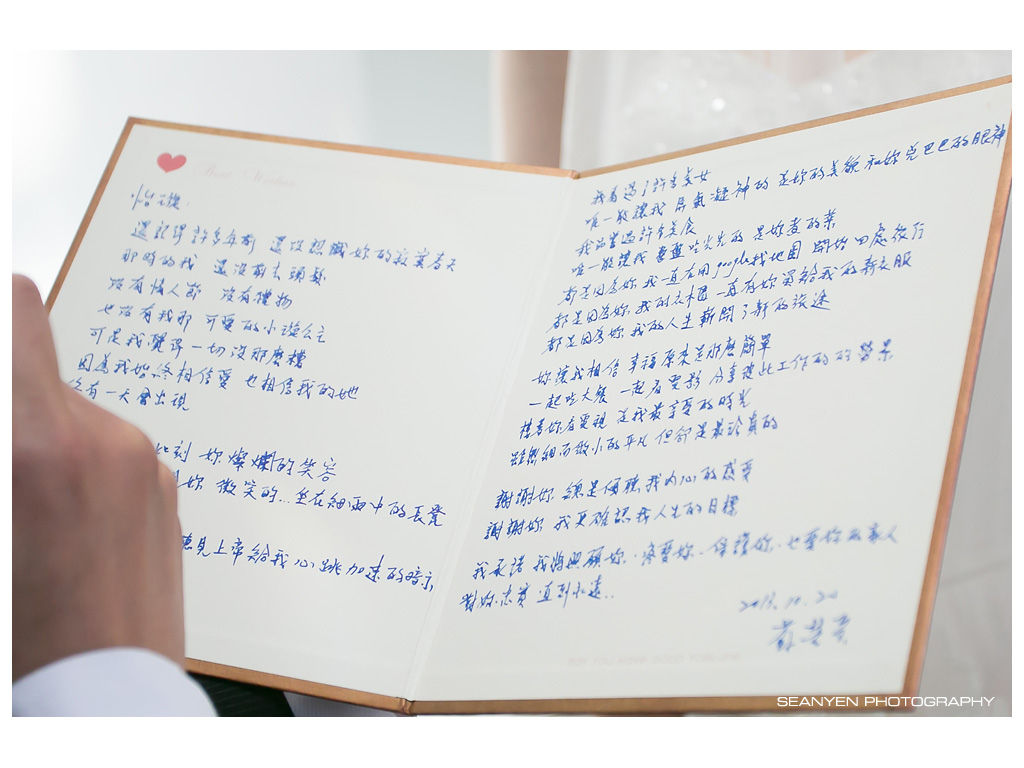 Best Wishes
還記得 許多年前 還沒想職妳的寂寞春天
那時的我 還沒剪去頭髮
沒有情人節 沒有禮物
也沒有我那 可愛的小遊公主
可是我覺得 一切沒那麼糟
因為我始終相信愛 也相信我的她
有一天會出現
此刻 妳燦爛的笑容
妳 微笑的...坐在細雨中的長凳
聽見上帝給我心跳加速的暗示
我看過了許多美女
唯一能讓我 屏氣凝神的 是妳的美貌 和妳兇巴巴的眼神
我品嘗過許多美食
唯一能讓我 盡盡吃光光的 是妳煮的菜
都是因為妳 我一直在用google找地圖 開始四處旅行
都是因為妳 我的衣櫃 一直有妳買給我的新衣服
都是因為妳 我的人生 嶄開了新的旅途
妳讓我相信 幸福原來是那麼簡單
一起吃大餐 一起看電影 分享彼此工作的的營景
摟著妳看電視 是我最享受的時光
雖然細而微小的平凡 但卻是最珍貴的
謝謝妳 總是傾聽我內心的感受
謝謝妳 我更確認我人生的目標
我承諾 我將照顧妳、疼愛妳、保護妳、也愛你的家人
對妳忠實 直到永遠..
2013.10.20
MAY YOU HAVE GOOD FORTUNE
SEANYEN PHOTOGRAPHY